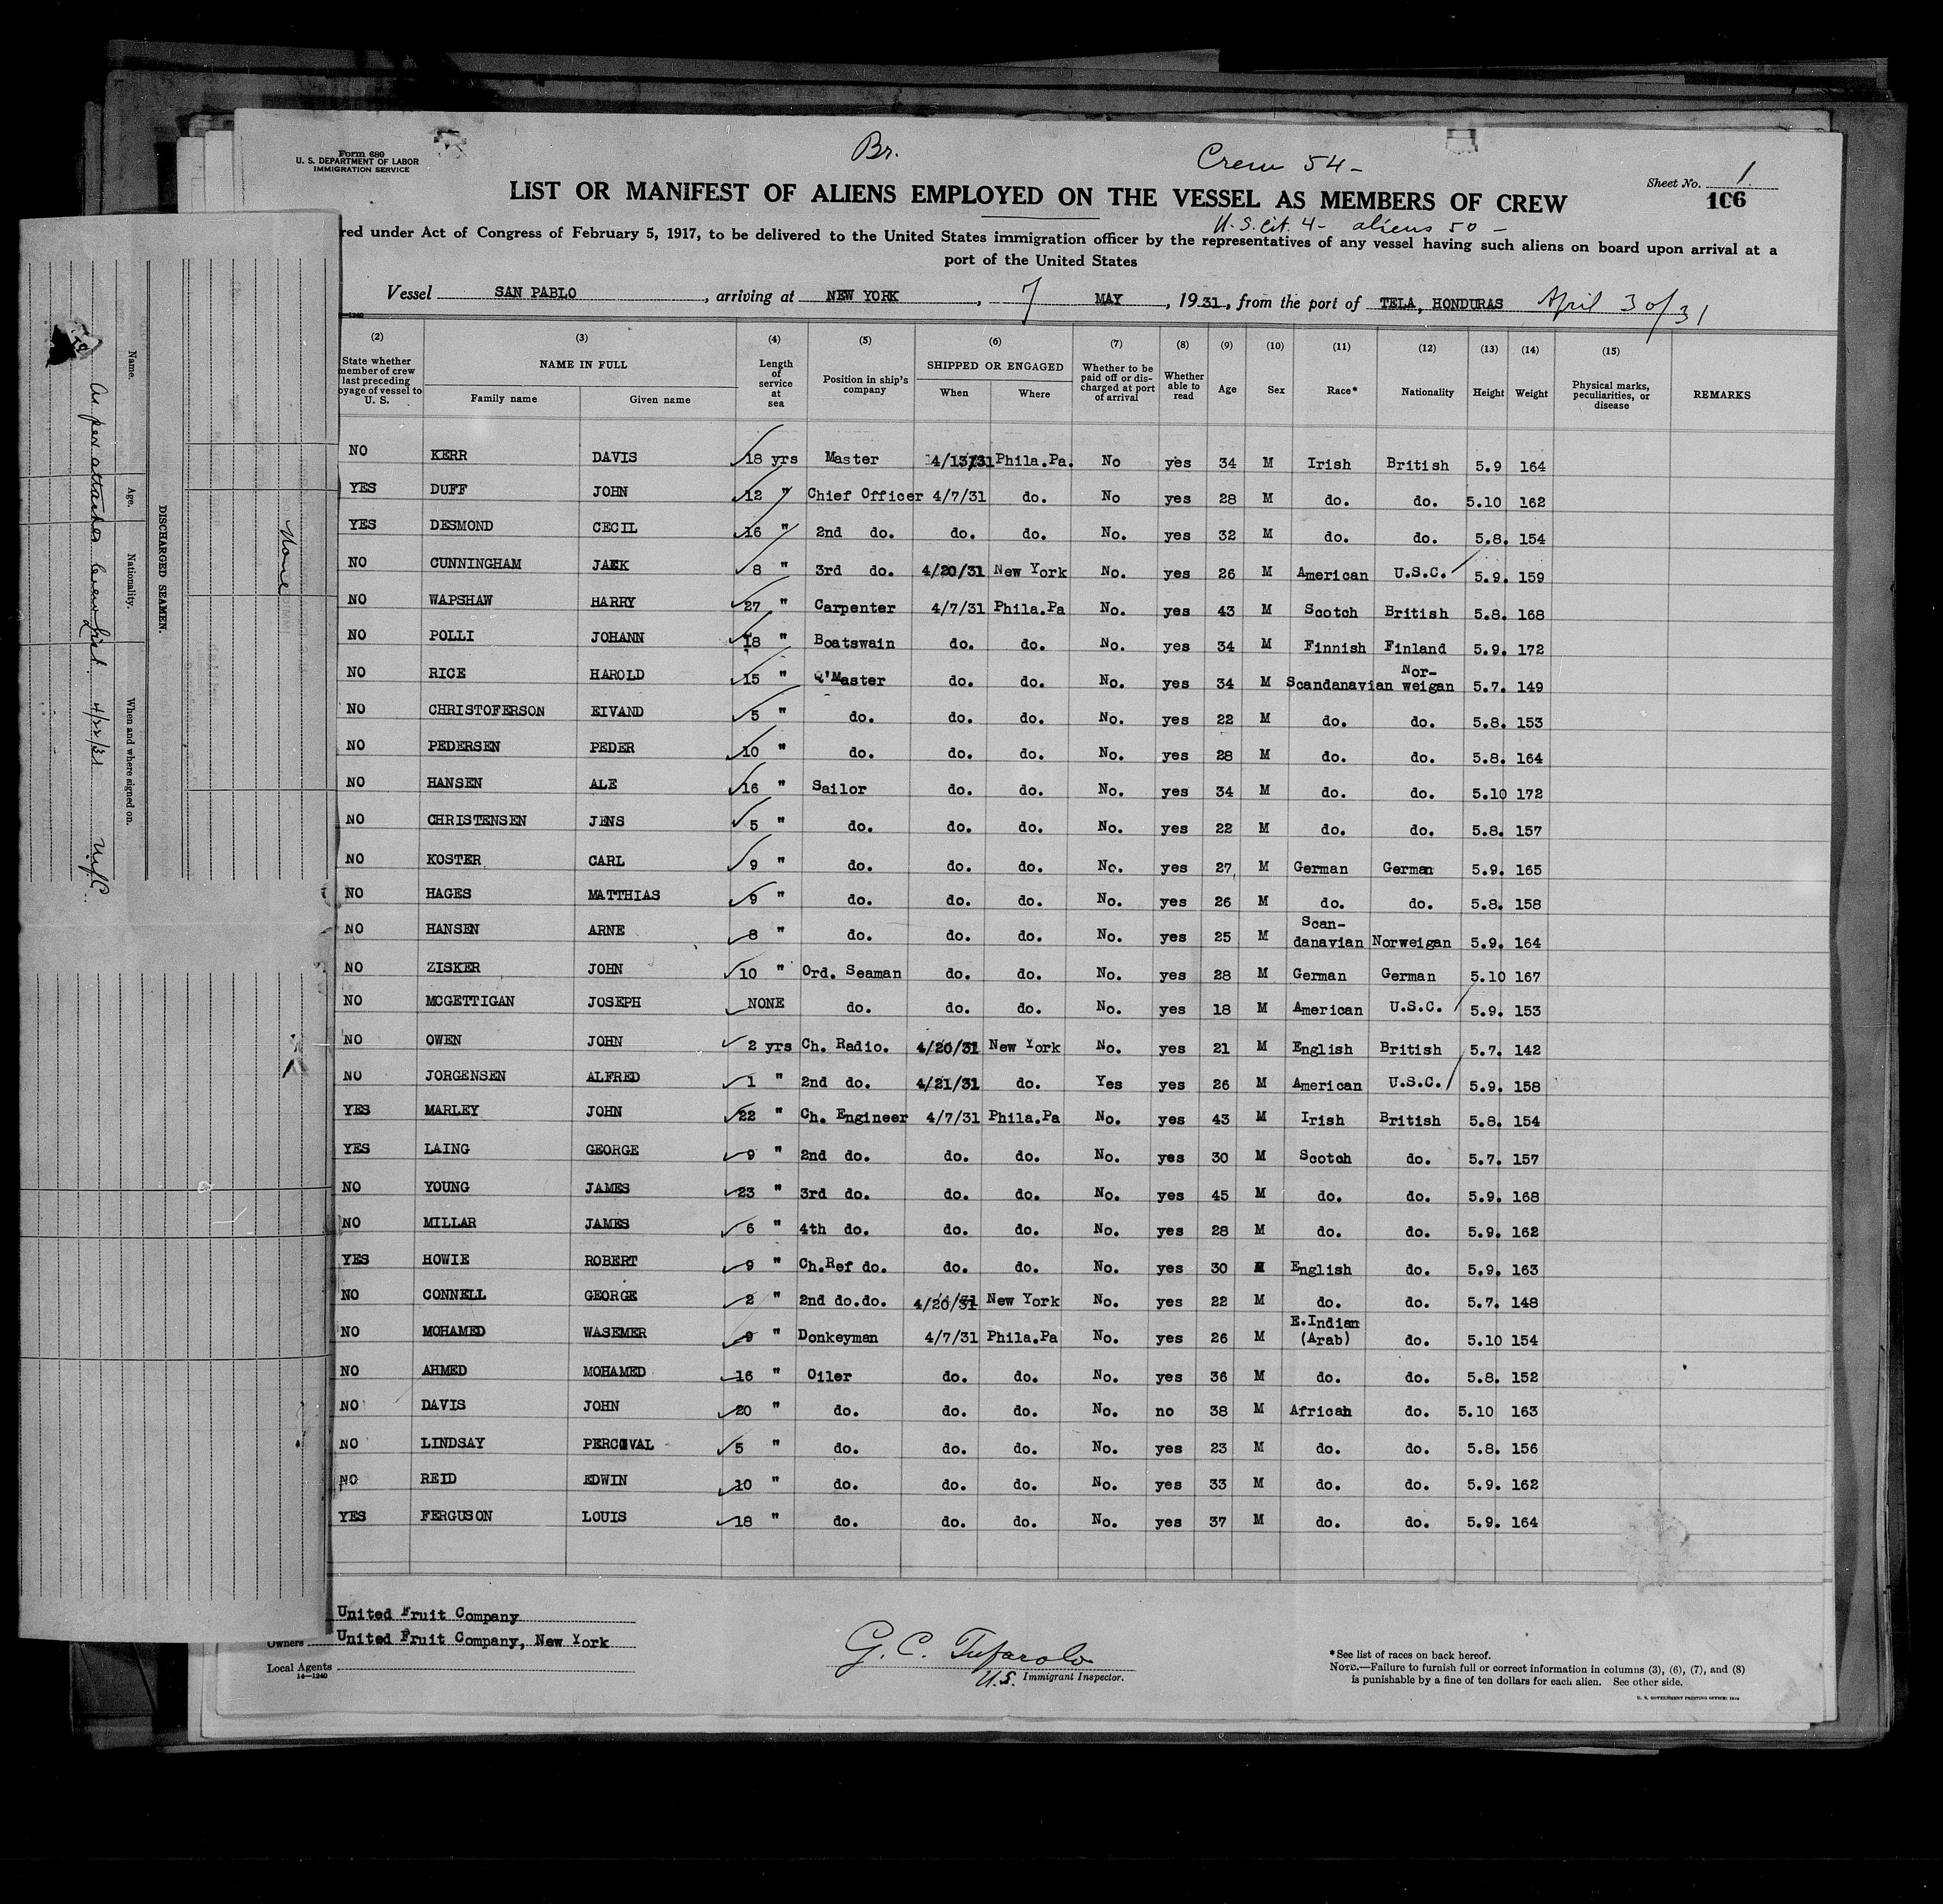 Form 680
U. S. DEPARTMENT OF LABOR
IMMIGRATION SERVICE
Br.
Crew 54-
Sheet No. 1
106
LIST OR MANIFEST OF ALIENS EMPLOYED ON THE VESSEL AS MEMBERS OF CREW
U.S. cit. 4- aliens 50-
red under Act of Congress of February 5, 1917, to be delivered to the United States immigration officer by the representatives of any vessel having such aliens on board upon arrival at a
port of the United States
Vessel SAN PABLO, arriving at NEW YORK, 7 MAY, 1931, from the port of TELA, HONDURAS April 30/31
(2) (3) (4) (5) (6) (7) (8) (9) (10) (11) (12) (13) (14) (15)
State whether member of crew last preceding oyage of vessel to U. S. NAME IN FULL Family name Given name Length of service at sea Position in ship's company SHIPPED OR ENGAGED When Where Whether to be paid off or discharged at port of arrival Whether able to read Age Sex Race* Nationality Height Weight Physical marks, peculiarities, or disease REMARKS
NO KERR DAVIS 18 yrs Master 4/13/31 Phila.Pa. No yes 34 M Irish British 5.9 164
YES DUFF JOHN 12 " Chief Officer 4/7/31 do. No yes 28 M do. do. 5.10 162
YES DESMOND CECIL 16 " 2nd do. do. do. No. yes 32 M do. do. 5.8. 154
NO CUNNINGHAM JACK 8 " 3rd do. 4/20/31 New York No. yes 26 M American U.S.C. 5.9. 159
NO WAPSHAW HARRY 27 " Carpenter 4/7/31 Phila.Pa No. yes 43 M Scotch British 5.8. 168
NO POLLI JOHANN 18 " Boatswain do. do. No. yes 34 M Finnish Finland 5.9. 172
NO RICE HAROLD 15 " Q'Master do. do. No. yes 34 M Scandanavian Nor-weigan 5.7. 149
NO CHRISTOFERSON EIVAND 5 " do. do. do. No. yes 22 M do. do. 5.8. 153
NO PEDERSEN PEDER 10 " do. do. do. No. yes 28 M do. do. 5.8. 164
NO HANSEN ALE 16 " Sailor do. do. No. yes 34 M do. do. 5.10 172
NO CHRISTENSEN JENS 5 " do. do. do. No. yes 22 M do. do. 5.8. 157
NO KOSTER CARL 9 " do. do. do. No. yes 27 M German German 5.9. 165
NO HAGES MATTHIAS 9 " do. do. do. No. yes 26 M do. do. 5.8. 158
NO HANSEN ARNE 8 " do. do. do. No. yes 25 M Scan-danavian Norweigan 5.9. 164
NO ZISKER JOHN 10 " Ord. Seaman do. do. No. yes 28 M German German 5.10 167
NO MCGETTIGAN JOSEPH NONE do. do. do. No. yes 18 M American U.S.C. 5.9. 153
NO OWEN JOHN 2 yrs Ch. Radio. 4/20/31 New York No. yes 21 M English British 5.7. 142
NO JORGENSEN ALFRED 1 " 2nd do. 4/21/31 do. Yes yes 26 M American U.S.C. 5.9. 158
YES MARLEY JOHN 22 " Ch. Engineer 4/7/31 Phila.Pa No. yes 43 M Irish British 5.8. 154
YES LAING GEORGE 9 " 2nd do. do. do. No. yes 30 M Scotch do. 5.7. 157
NO YOUNG JAMES 23 " 3rd do. do. do. No. yes 45 M do. do. 5.9. 168
NO MILLAR JAMES 6 " 4th do. do. do. No. yes 28 M do. do. 5.9. 162
YES HOWIE ROBERT 9 " Ch.Ref do. do. do. No. yes 30 M English do. 5.9. 163
NO CONNELL GEORGE 2 " 2nd do.do. 4/20/31 New York No. yes 22 M do. do. 5.7. 148
NO MOHAMED WASEMER 9 " Donkeyman 4/7/31 Phila.Pa No. yes 26 M E.Indian (Arab) do. 5.10 154
NO AHMED MOHAMED 16 " Oiler do. do. No. yes 36 M do. do. 5.8. 152
NO DAVIS JOHN 20 " do. do. do. No. no 38 M African do. 5.10 163
NO LINDSAY PERCIVAL 5 " do. do. do. No. yes 23 M do. do. 5.8. 156
NO REID EDWIN 10 " do. do. do. No. yes 33 M do. do. 5.9. 162
YES FERGUSON LOUIS 18 " do. do. do. No. yes 37 M do. do. 5.9. 164
United Fruit Company
Owners United Fruit Company, New York
Local Agents
14—1240
G. C. Tufarolo
U.S. Immigrant Inspector.
*See list of races on back hereof.
NOTE.—Failure to furnish full or correct information in columns (3), (6), (7), and (8)
is punishable by a fine of ten dollars for each alien. See other side.
U. S. GOVERNMENT PRINTING OFFICE:
DISCHARGED SEAMEN.
Name. Age. Nationality. When and where signed on.
As per attached Crew List 4/22/31 N.Y.C.
None